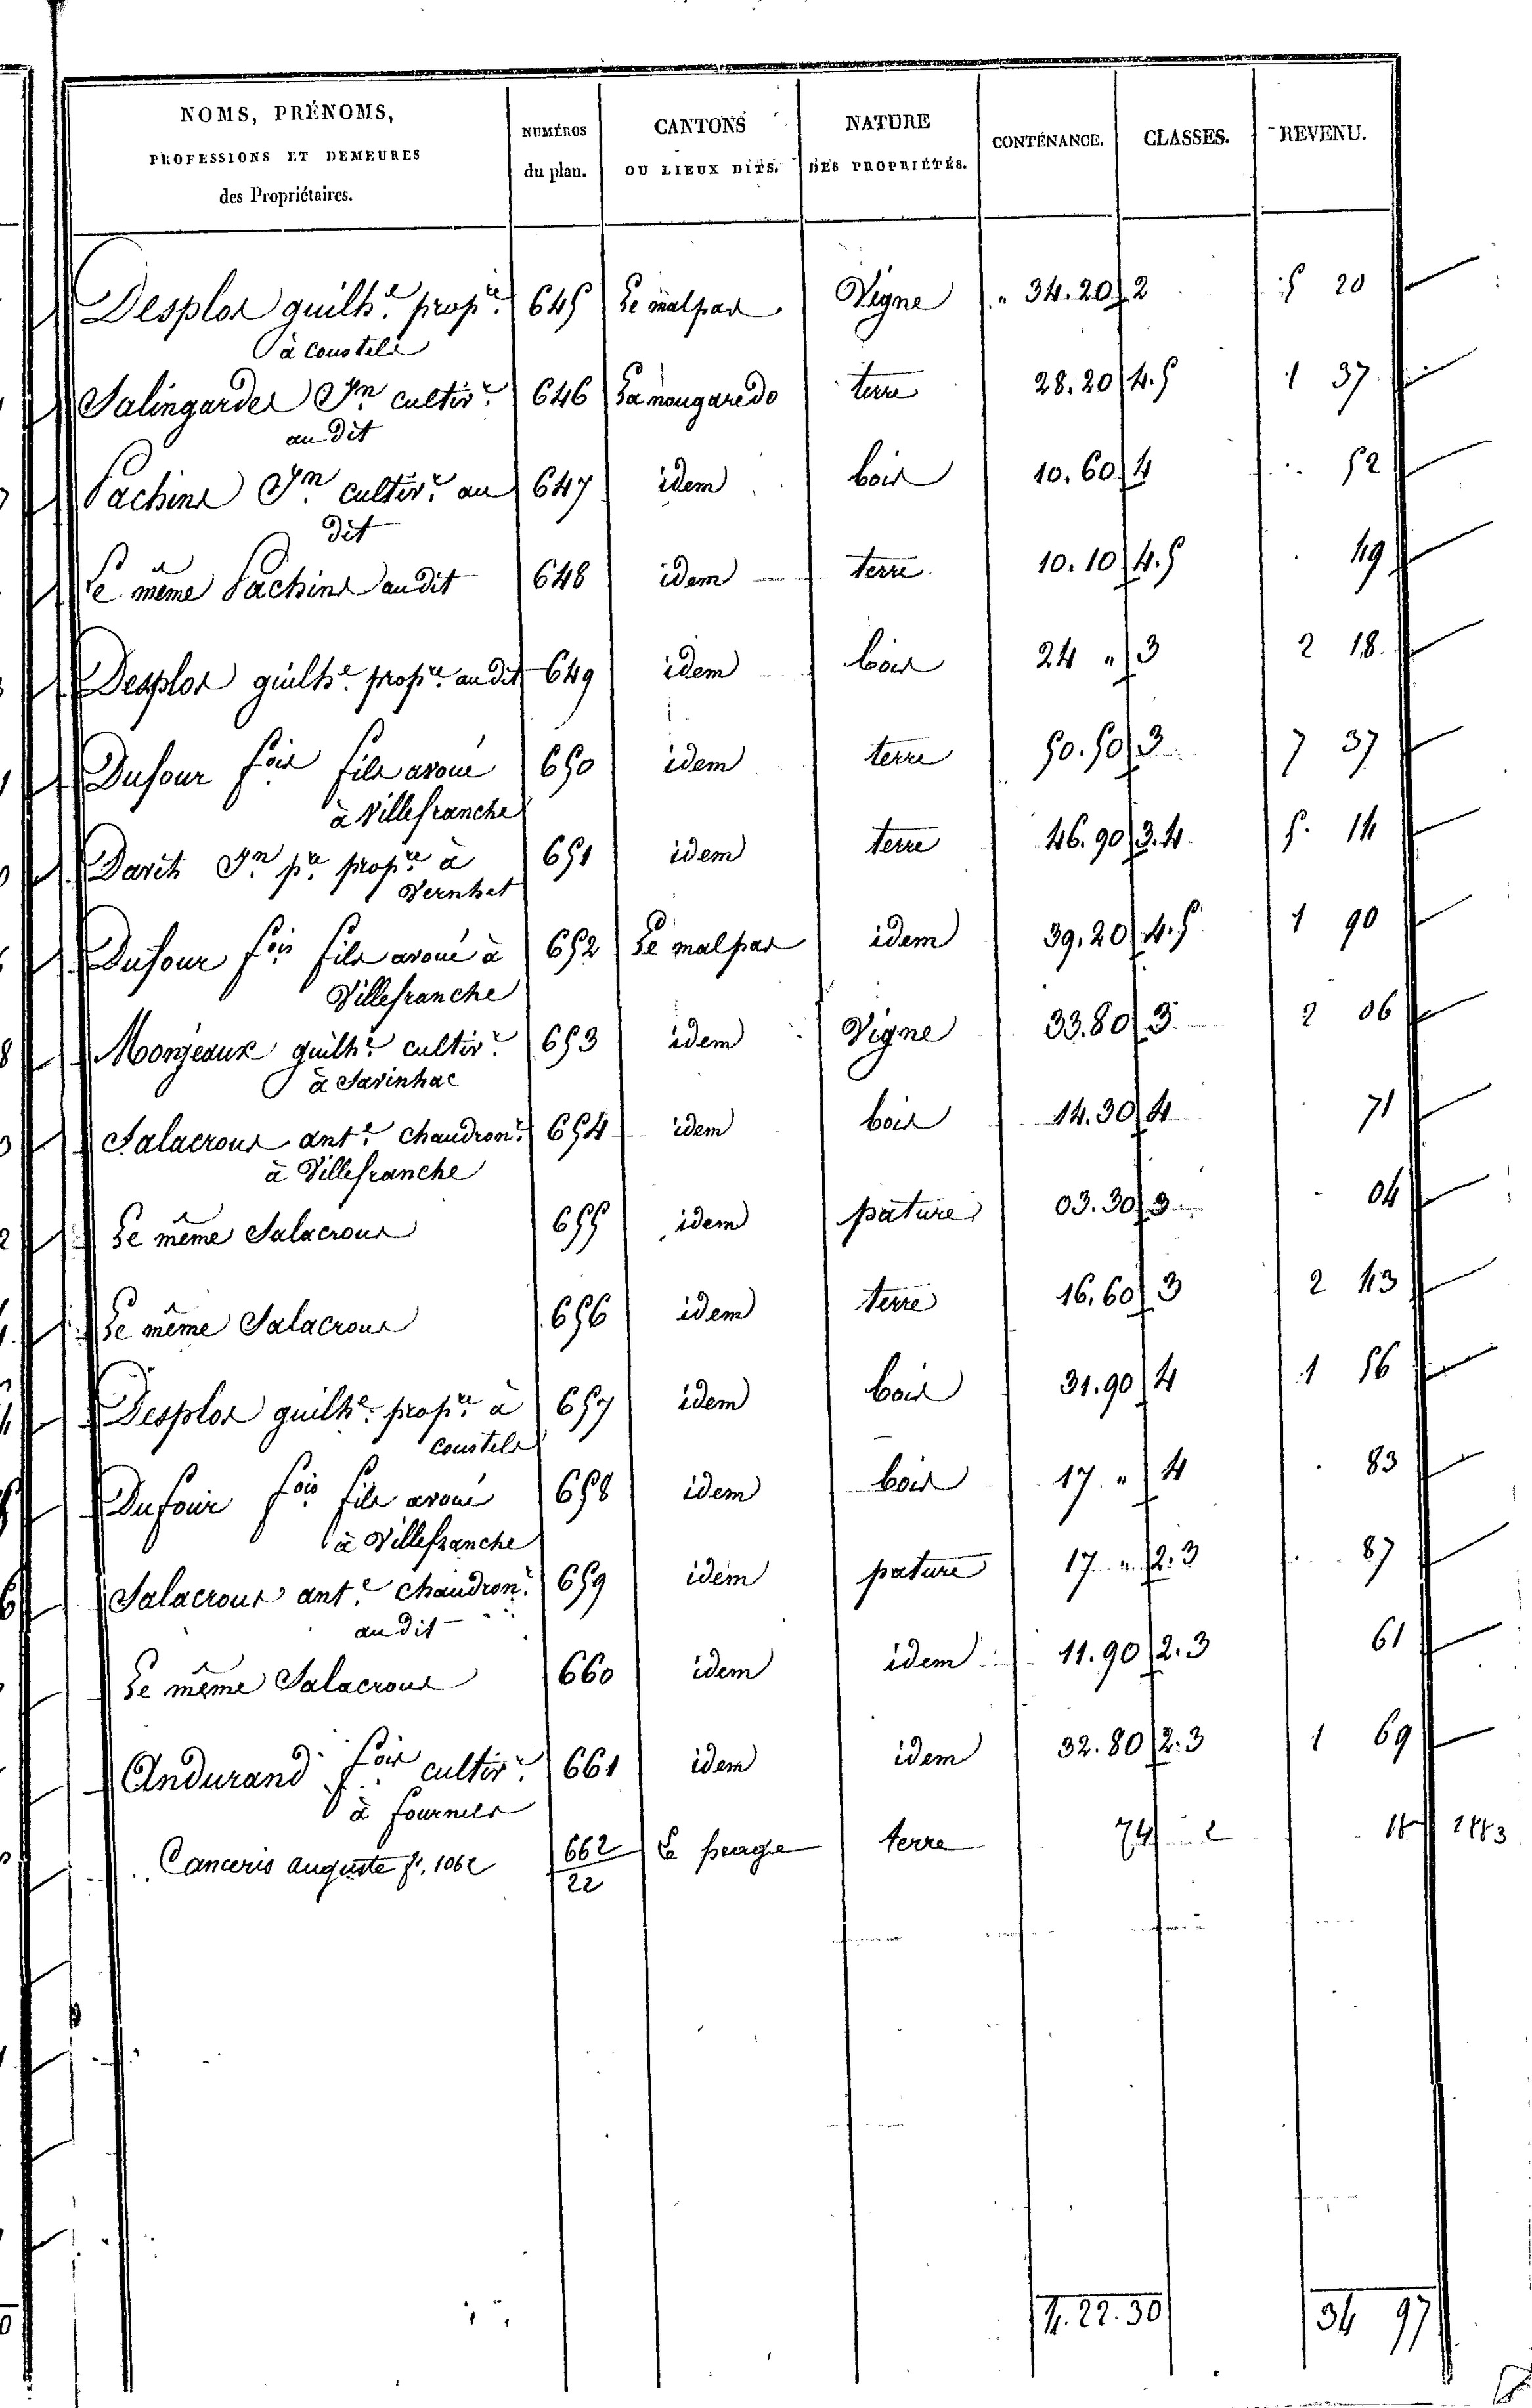 NOMS, PRÉNOMS, PROFESSIONS ET DEMEURES des Propriétaires. NUMÉROS du plan. CANTONS OU LIEUX DITS. NATURE DES PROPRIÉTÉS. CONTENANCE. CLASSES. REVENU.
Desplos guilhe. propre. 645 Le malpas Vigne " 34.20 2 5 20
à Coustels
Salingardes Jn cultivr. 646 La nougaredo terre 28.20 4.5 1 37
au dit
Pachins Jn cultivr. au 647 idem bois 10.60 4 52
dit
Le même Pachins au dit 648 idem terre 10.10 4.5 49
Desplos guilhe. propre. au dit 649 idem bois 24 " 3 2 18
Dufour fois fils avoué 650 idem terre 50.50 3 7 37
à Villefranche
Darih Jn pre propre à 651 idem terre 46.90 3.4 5 14
Vernhet
Dufour fois fils avoué à 652 Le malpas idem 39.20 4.5 1 90
Villefranche
Monjeaux guilhe. cultivr. 653 idem Vigne 33.80 3 2 06
à Savinhac
Salacroux ante. chaudronr. 654 idem bois 14.30 4 71
à Villefranche
Le même Salacroux 655 idem pature 03.30 3 04
Le même Salacroux 656 idem terre 16.60 3 2 43
Desplos guilhe. propre. à 657 idem bois 31.90 4 1 56
Coustels
Dufour fois fils avoué 658 idem bois 17. " 4 83
à Villefranche
Salacroux ante. chaudronr. 659 idem pature 17 " 2.3 87
au dit
Le même Salacroux 660 idem idem 11.90 2.3 61
Andurand fois cultivr. 661 idem idem 32.80 2.3 1 69
à fournels
Canceris auguste fo. 1062 662/22 terre 74 2 18
4.22.30 34 97